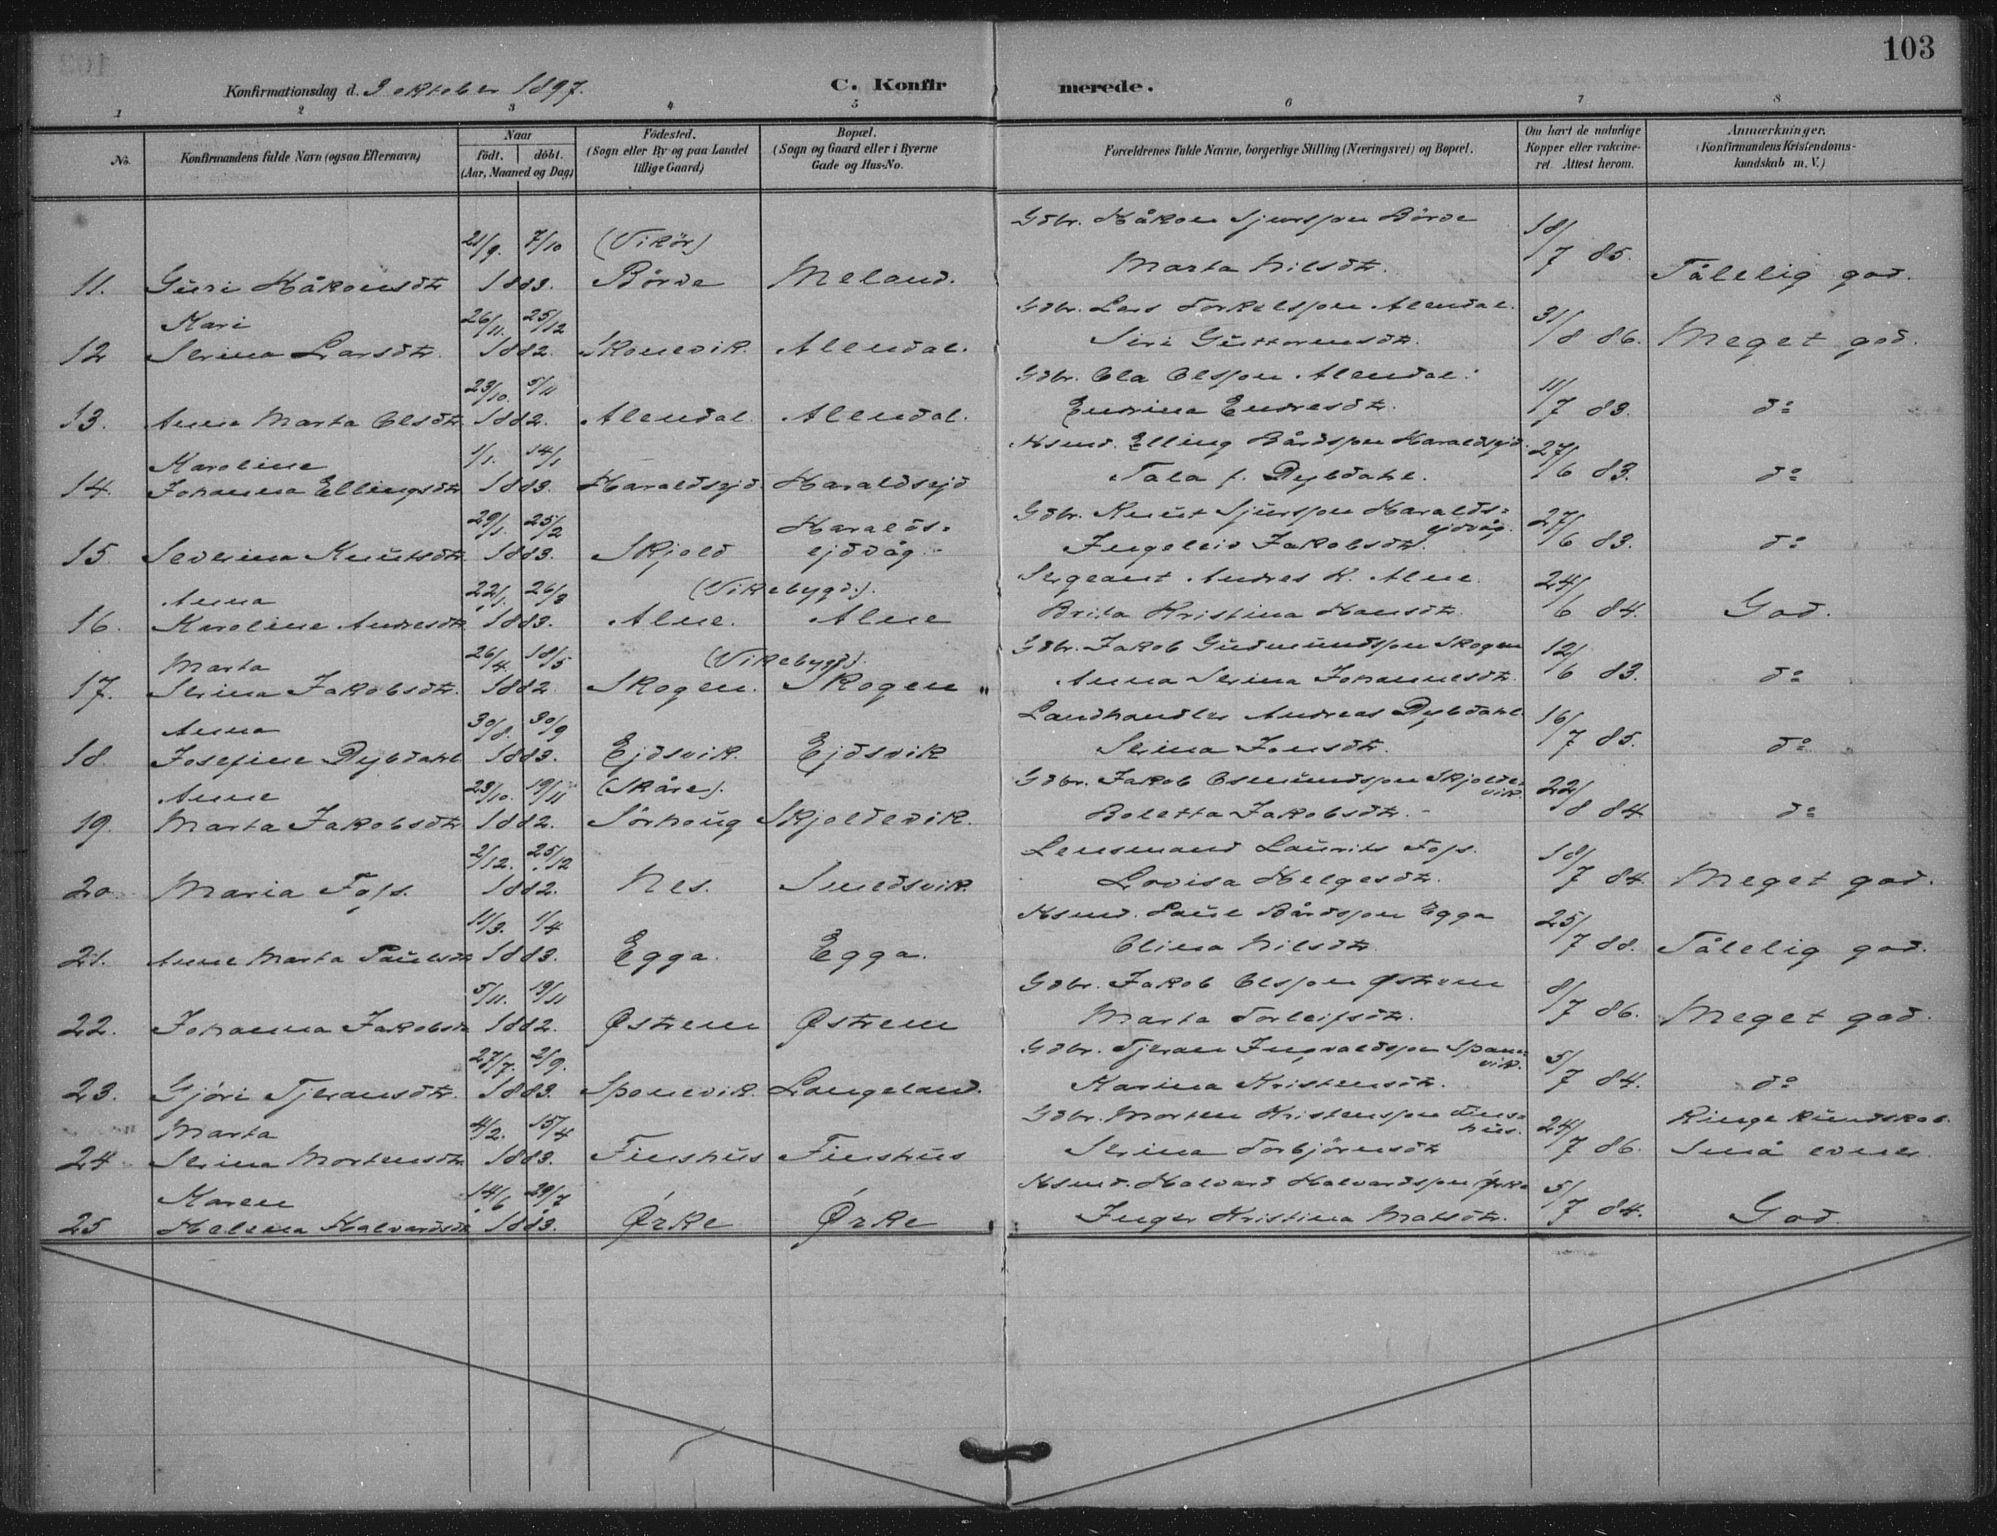 103
Konfirmationsdag d. 3 oktober 1897.
C. Konfirmerede.
1 2 3 4 5 6 7 8
No.
Konfirmandens fulde Navn (ogsaa Efternavn)
Naar
født. | döbt.
(Aar, Maaned og Dag)
Födested.
(Sogn eller By og paa Landet
tillige Gaard)
Bopæl.
(Sogn og Gaard eller i Byerne
Gade og Hus-No.
Forældrenes fulde Navne, borgerlige Stilling (Næringsvei) og Bopæl.
Om havt de naturlige
Kopper eller vakcine-
ret. Attest herom.
Anmærkninger.
(Konfirmandens Kristendoms-
kundskab m. V.)
21/9. 7/10 (Vikör) Gdbr. Håkon Sjursson Börve 18/
11. Guri Håkonsdtr 1883. Börve Meland. Marta Nilsdtr. 7 85. Tålelig god.
Kari 26/11. 25/12 Gdbr. Lars Torkelsson Alendal. 31/
12 Serina Larsdtr. 1882. Skonevik. Alendal. Siri Guttormsdtr. 8 86. Meget god.
23/10. 5/11 Gdbr. Ola Olsson Alendal. 11/
13. Anna Marta Olsdtr 1882. Alendal. Alendal. Endrina Endresdtr. 7 83. do
Karoline 1/1. 14/1 Hsmd. Elling Bårdsson Haraldsejd. 27/
14. Johanna Ellingsdtr 1883. Haraldsejd. Haraldsejd Tala f. Dybdahl. 6 83. do
29/1. 25/2 Haralds- Gdbr. Knut Sjursson Haralds- 27/
ejdvåg.
15. Severina Knutsdtr. 1883. Skjold ejdvåg. Ingeleiv Jakobsdtr. 6 83. do
Anna 22/1. 26/3 (Vikebygd). Sergeant Andres K. Alne. 24/
16. Karoline Andresdtr 1883. Alne. Alne Brita Kristina Hansdtr. 6 84. God.
Marta 26/4. 18/5 (Vikebygd). Gdbr. Jakob Gudmundsson Skogen 12/
17. Serina Jakobsdtr. 1882. Skogen. Skogen " Anna Serina Johannesdtr. 6 83. do
Anna 30/8. 30/9 Landhandler Andreas Dybdahl 16/
18. Josefine Dybdahl 1883. Ejdsvik. Ejdsvik Serina Jonsdtr. 7 85. do
Anne 23/10. 19/11 (Skåre). Gdbr. Jakob Osmundsson Skjolde- 22/
vik.
19. Marta Jakobsdtr 1882. Sörhoug Skjoldevik. Boletta Jakobsdtr. 8 84 do
2/12. 25/12 Lensmand Laurits Foss. 18/
20. Maria Foss. 1882. Nes. Smedsvik. Lovisa Helgesdtr. 7 84. Meget god.
11/3. 1/4 Hsmd. Paul Bårdsson Egga 25/
21. Anne Marta Paulsdtr 1883. Egga. Egga. Olina Nilsdtr. 7 88. Tålelig god.
5/11. 19/11 Gdbr. Jakob Olsson Østrem 8/
22. Johanna Jakobsdtr 1882. Østrem Østrem Marta Torleifsdtr. 7 86. Meget god.
27/7. 2/9. Gdbr. Tjeran Ingvaldsson Spone- 5/
vik.
23. Gjöri Tjeransdtr. 1883. Sponevik. Langeland. Karina Kristensdtr. 7 84. do
Marta 4/2. 15/4 Gdbr. Morten Kristensson Fins- 24/ Ringe kundskab.
hus.
24 Serina Mortensdtr 1883. Finshus Finshus Serina Torbjörnsdtr 7 86. Små evner.
Karen 14/6. 29/7 Hsmd. Halvard Halvardsson Ørke 5/
25 Helena Halvardsdtr 1883. Ørke Ørke Inger Kristina Matsdtr. 7 84. God.